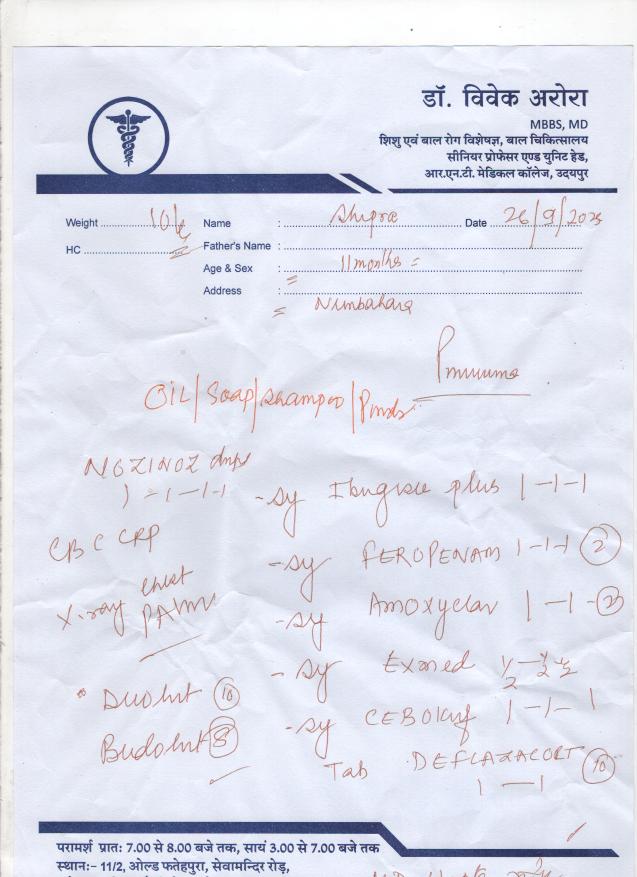 डॉ. विवेक अरोरा
MBBS, MD
शिशु एवं बाल रोग विशेषज्ञ, बाल चिकित्सालय
सीनियर प्रोफेसर एण्ड युनिट हेड,
आर.एन.टी. मेडिकल कॉलेज, उदयपुर
Weight 10k Name : Shipra Date 26/9/2025
HC Father's Name :
Age & Sex : 11 months =
Address : Nimbahara
OIL/Soap/Shampoo/
NOZINOZ drops
1-1-1-1
- sy Ibugesic plus 1-1-1
CBC CRP
- sy FEROPENAM 1-1-1 2
X-ray chest
PA view
- sy Amoxyclav 1-1-
- sy Exmed ½-½-½
Duolint 10
- sy 1-1-1
Budolint 8
Tab DEFLAZACORT 10
1-1
परामर्श प्रातः 7.00 से 8.00 बजे तक, सायं 3.00 से 7.00 बजे तक
स्थानः- 11/2, ओल्ड फतेहपुरा, सेवामन्दिर रोड़,